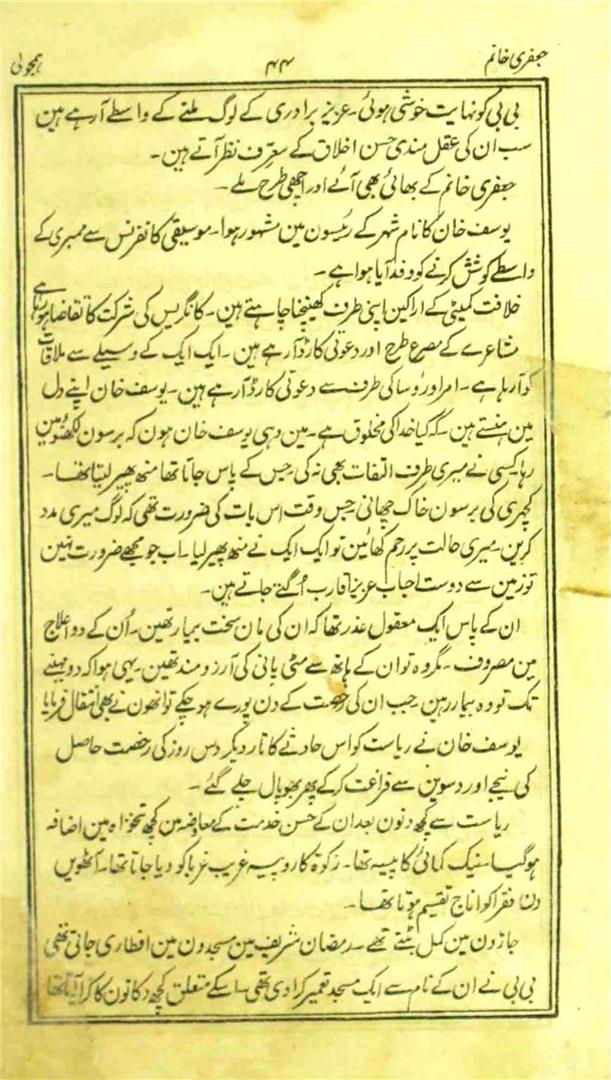 جعفری خانم ۴۴ ہمجولی
بی بی کو نہایت خوشی ہوئی۔ عزیز برادری کے لوگ ملنے کے واسطے آرہے ہین
سب ان کی عقل مندی حسن اخلاق کے معترف نظر آتے ہین۔
جعفری خانم کے بھائی بھی آئے اور اچھی طرح ملے۔
یوسف خان کا نام شہر کے رئیسون مین مشہور ہوا۔ موسیقی کانفرنس سے ممبری کے
واسطے کوشش کرنے کو وفد آیا ہوا ہے۔
خلافت کمیٹی کے اراکین اپنی طرف کھینچنا چاہتے ہین۔ کانگریس کی شرکت کا تقاضا ہورہا ہے
مشاعرے کے مصرع طرح اور دعوتی کارڈ آرہے ہین۔ ایک ایک کے وسیلے سے ملاقات
کو آرہا ہے۔ امرا و رؤسا کی طرف سے دعوتی کارڈ آرہے ہین۔ یوسف خان اپنے دل
مین ہنستے ہین۔ کہ کیا خدا کی مخلوق ہے۔ مین وہی یوسف خان ہون کہ برسون لکھنؤ مین
رہا کسی نے میری طرف التفات بھی نہ کی جس کے پاس جاتا تھا منھ پھیر لیتا تھا۔
کچہری کی برسون خاک چھانی جس وقت اس بات کی ضرورت تھی کہ لوگ میری مدد
کرین۔ میری حالت پر رحم کھائین تو ایک ایک نے منھ پھیر لیا۔ اب جو مجھے ضرورت نہین
تو زمین سے دوست احباب عزیز اقارب اُگتے جاتے ہین۔
ان کے پاس ایک معقول عذر تھا کہ ان کی مان سخت بیمار تھین۔ اُن کے دوا علاج
مین مصروف۔ مگر وہ تو ان کے ہاتھ سے مٹی پانی کی آرزومند تھین۔ یہی ہوا کہ دو مہینے
تک تو وہ بیمار رہین جب ان کی رخصت کے دن پورے ہوچکے تو انھون نے بھی انتقال فرمایا
یوسف خان نے ریاست کو اس حادثے کا تار دیکر دس روز کی رخصت حاصل
کی تیجے اور دسوین سے فراغت کرکے پھر بھوپال چلے گئے۔
ریاست سے کچھ دنون بعد ان کے حسن خدمت کے معاوضہ مین کچھ تنخواہ مین اضافہ
ہوگیا۔ نیک کمائی کا پیسہ تھا۔ زکوٰۃ کا روپیہ غریب غربا کو دیا جاتا تھا۔ آٹھوین
دن فقرا کو اناج تقسیم ہوتا تھا۔
جاڑون مین کمل بٹتے تھے۔ رمضان شریف مین مسجدون مین افطاری جاتی تھی
بی بی نے ان کے نام سے ایک مسجد تعمیر کرادی تھی۔ اسکے متعلق کچھ دکانون کا کرایا تھا